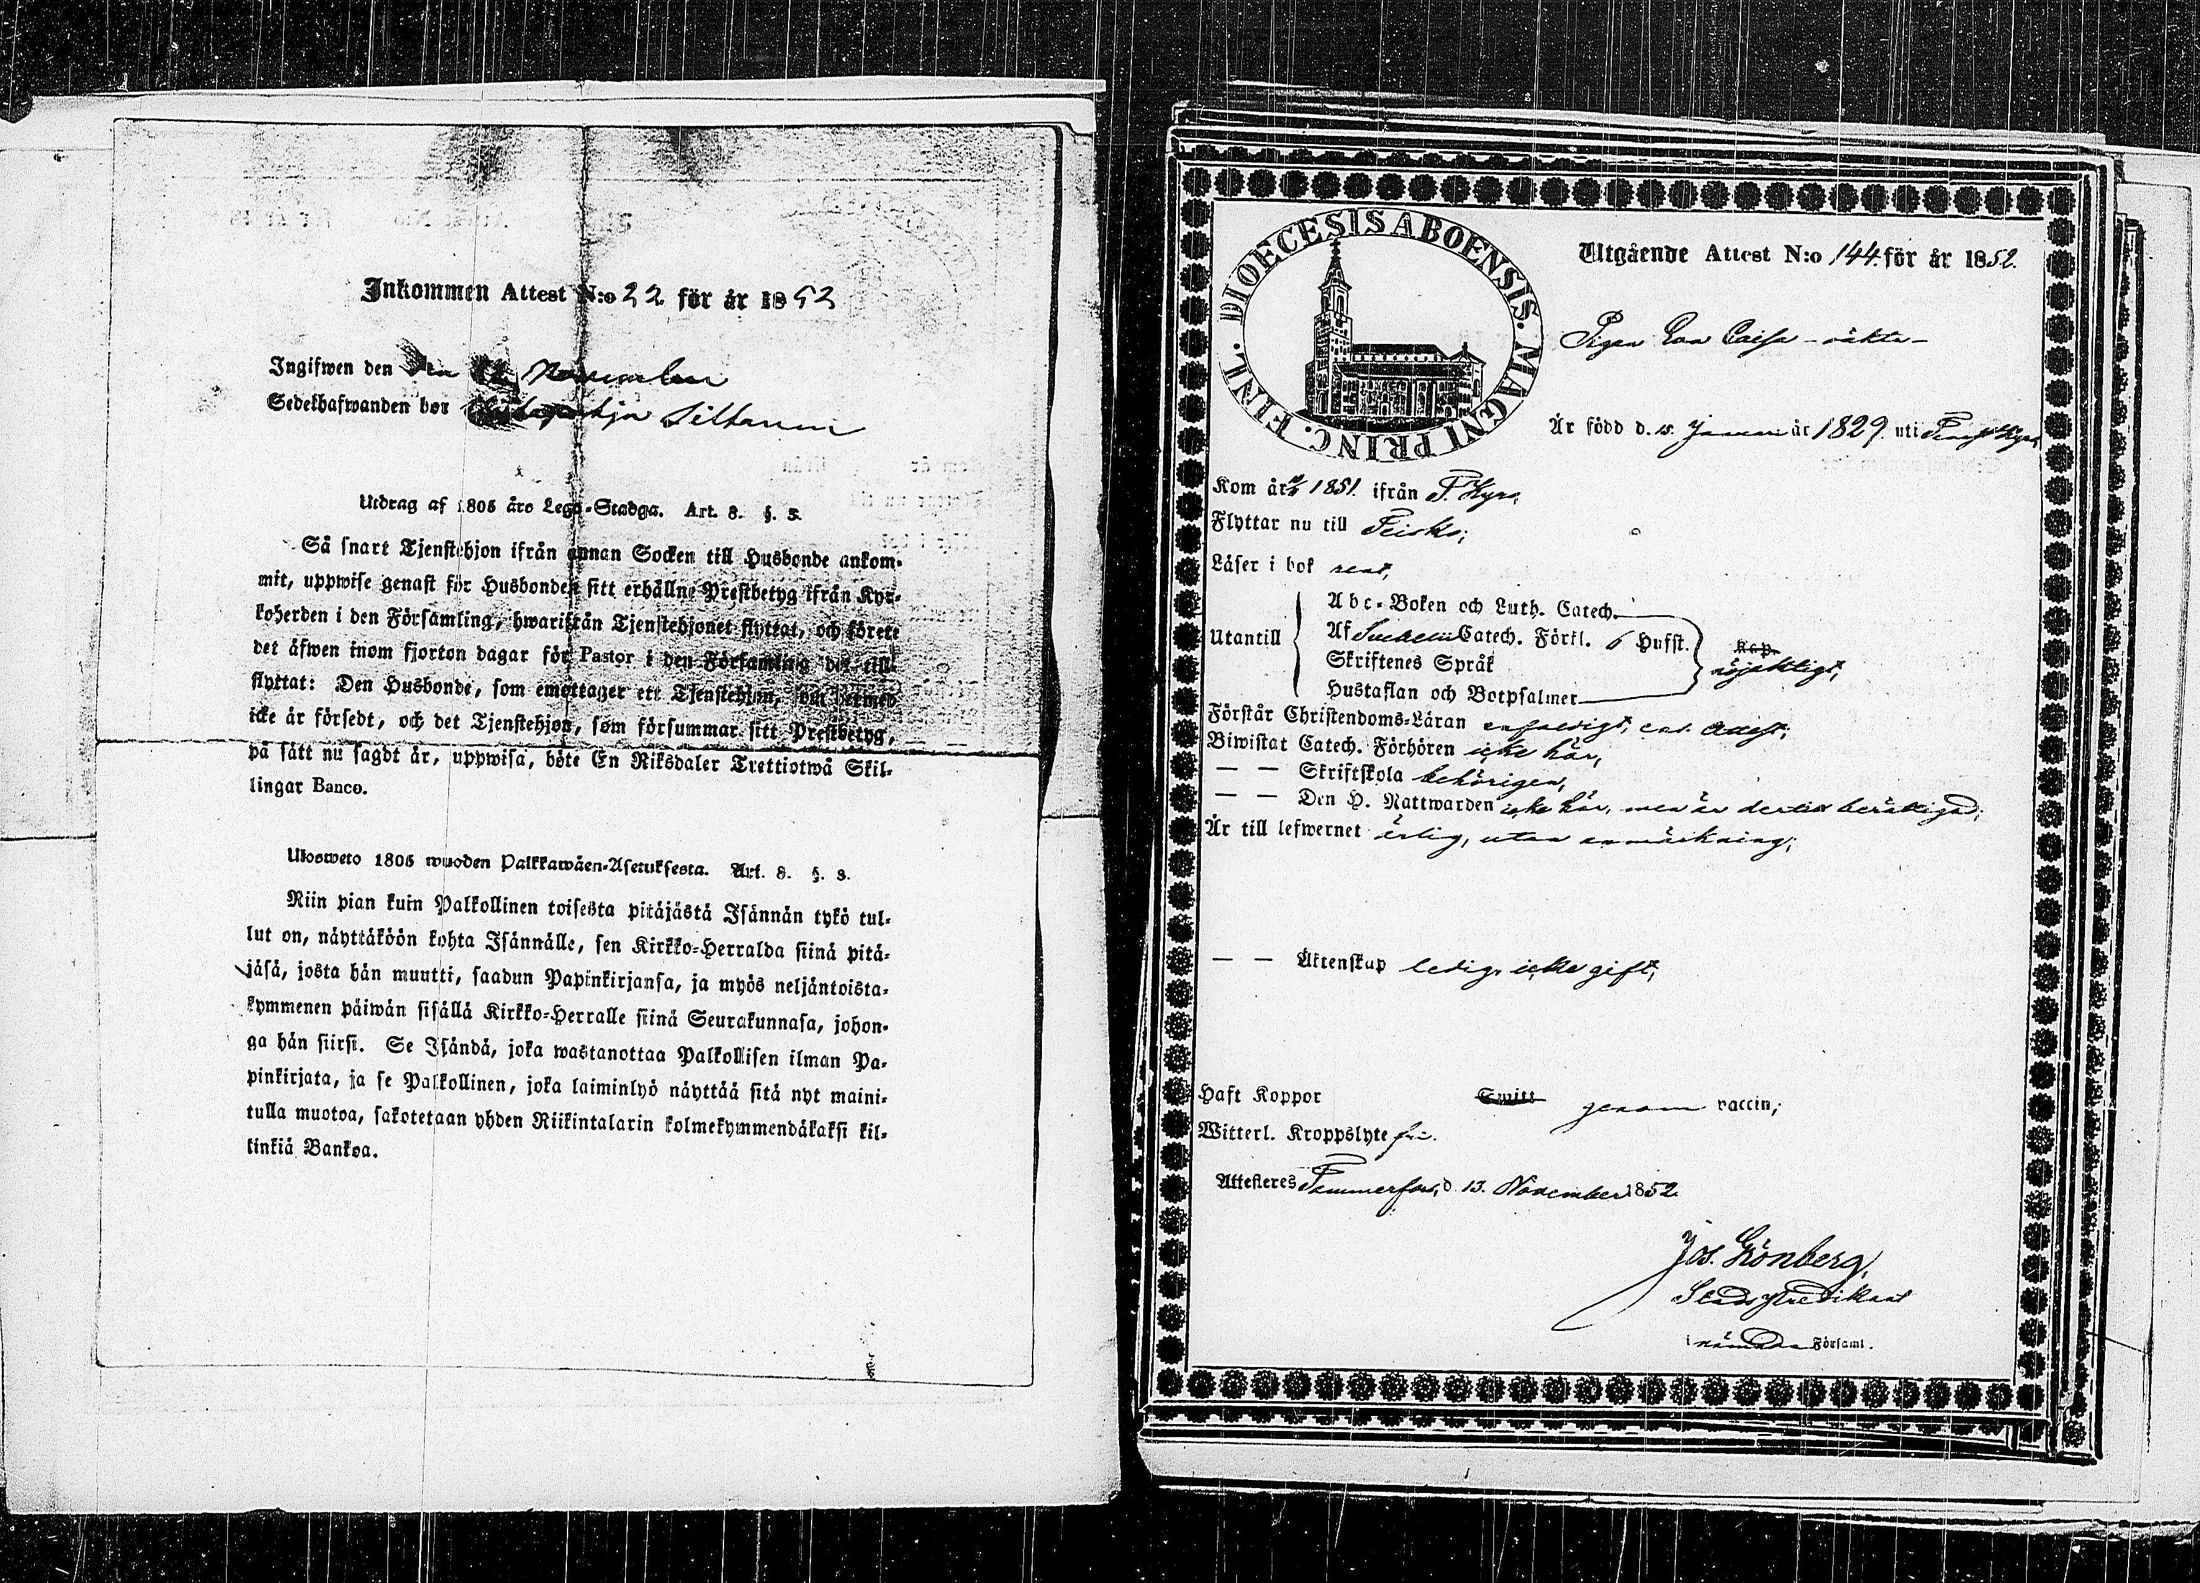 Inkommen Attest N:o 22 för år 1852
Ingifwen den November
Sedelhafwanden bor
Utdrag af 1805 års Lego-Stadga. Art. 8. §. 3.
Så snart Tjenstehjon ifrån annan Socken till Husbonde ankom-
mit, uppwise genast för Husbonden sitt erhållne Prestbetyg ifrån Kyr-
koherden i den Församling, hwarifrån Tjenstehjonet flyttat, och förete
det äfwen inom fjorton dagar för Pastor i den Församling det till
flyttat: Den Husbonde, som emottager ett Tjenstehjon, som dermed
icke är försedt, och det Tjenstehjon, som försummar sitt Prestbetyg,
på sätt nu sagdt är, uppwisa, böte En Riksdaler Trettiotwå Skil-
lingar Banco.
Ulosweto 1805 wuoden Palkkawäen-Asetuksesta. Art. 8. §. 3.
Niin pian kuin Palkollinen toisesta pitäjästä Isännän tykö tul-
lut on, näyttäköön kohta Isännälle, sen Kirkko-Herralda siinä pitä-
jäsä, josta hän muutti, saadun Papinkirjansa, ja myös neljäntoista-
kymmenen päiwän sisällä Kirkko-Herralle siinä Seurakunnasa, johon-
ga hän siirsi. Se Isändä, joka wastanottaa Palkollisen ilman Pa-
pinkirjata, ja se Palkollinen, joka laiminlyö näyttää sitä nyt maini-
tulla muotoa, sakotetaan yhden Riikintalarin kolmekymmendäkaksi kil-
linkiä Bankoa.
DIOECESIS ABOENSIS. MAGNI PRINC. FINL.
Utgående Attest N:o 144. för år 1852.
Pigan Eva Caisa
Är född d. 15 Januari år 1829. uti
Kom år 1851. ifrån T. Kyro,
Flyttar nu till
Läser i bok rent,
Utantill
Abc-Boken och Luth. Catech.
Af Catech. Förkl. 6 Hufst.
Skriftenes Språk
Hustaflan och Botpsalmer
Kap.
nöjaktigt,
Förstår Christendoms-Läran enfaldigt, enl. Attest;
Biwistat Catech. Förhören icke här,
— — Skriftskola behörigen,
— — Den H. Nattwarden icke här, men är dertill berättigad;
Är till lefwernet ärlig, utan anmärkning;
— — Äktenskap ledig, icke gift;
Haft Koppor Smitt genom vaccin;
Witterl. Kroppslyte fri.
Attesteres Tammerfors, d 13. November 1852.
Jos. Grönberg,
Stadspredikant
i nämnda Församl.